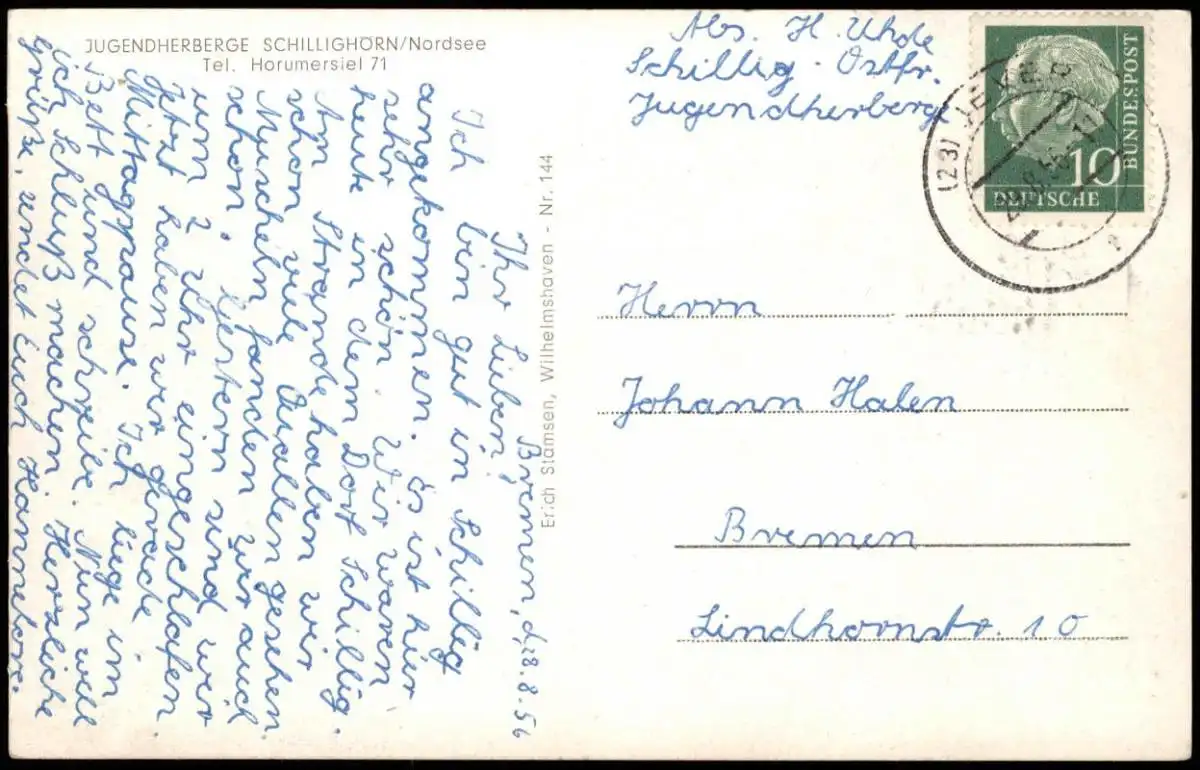 JUGENDHERBERGE SCHILLIGHÖRN/Nordsee
Tel. Horumersiel 71
Bremen, d. 28.8.56
Ihr Lieben!
Ich bin gut in Schillig
angekommen. Es ist hier
sehr schön. Wir waren
heute in dem Dorf Schillig.
Am Strande haben wir
schon viele Quallen gesehen
Muscheln fanden wir auch
schon. Gestern sind wir
um 2 Uhr eingeschlafen.
Jetzt haben wir gerade
Mittagspause. Ich liege im
Bett und schreibe. Nun will
ich Schluß machen. Herzliche
Grüße sendet Euch Hannelore.
Erich Stamsen, Wilhelmshaven - Nr. 144
Abs. H. Uhde
Schillig - Ostfr.
Jugendherberge
(23) JEVER
DEUTSCHE
BUNDESPOST
10
Herrn
Johann Halen
Bremen
Lindhornstr. 10